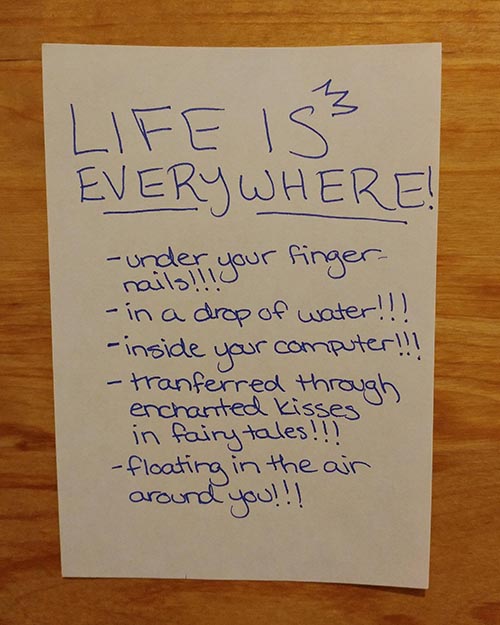 LIFE IS
EVERYWHERE!
- under your finger-
nails!!!
- in a drop of water!!!
- inside your computer!!!
- tranferred through
enchanted kisses
in fairy tales!!!
- floating in the air
around you!!!